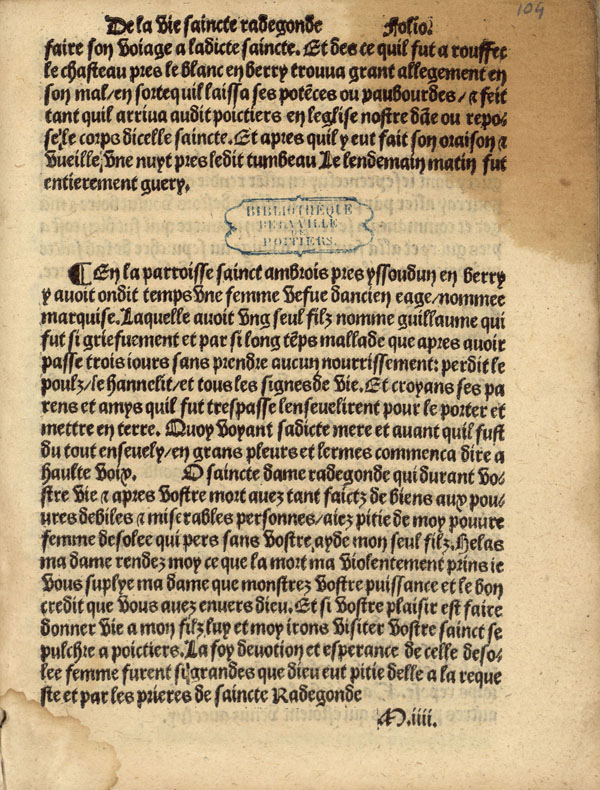 104
De la vie saincte radegonde Folio.
faire son voiage a ladicte saincte. Et des ce quil fut a rouffec
le chasteau pres le blanc en berry trouua grant allegement en
son mal/en sorte quil laissa ses potēces ou paubourdes/⁊ feit
tant quil arriua audit poictiers en leglise nostre dāe ou repo-
se le corps dicelle saincte. Et apres quil y eut fait son oraison ⁊
vueille, vne nuyt pres ledit tumbeau Le lendemain matin fut
entierement guery.
BIBLIOTHEQUE
DE LA VILLE
DE
POITIERS.
¶ En la parroisse sainct ambrois pres yssoudun en berry
y auoit ondit temps vne femme vefue dancien eage/nommee
marquise. Laquelle auoit vng seul filz nomme guillaume qui
fut si griefuement et par si long tēps mallade que apres auoir
passe trois iours sans prendre aucun nourrissement: perdit le
poulz/le hannelit/et tous les signes de vie. Et croyans ses pa
rens et amys quil fut trespasse lenseuelirent pour le porter et
mettre en terre. Quoy voyant sadicte mere et auant quil fust
du tout enseuely/en grans pleurs et lermes commenca dire a
haulte voix. O saincte dame radegonde qui durant vo-
stre vie ⁊ apres vostre mort auez tant faictz de biens aux pou-
ures debiles ⁊ miserables personnes/aiez pitie de moy pouure
femme desolee qui pers sans vostre ayde mon seul filz. Helas
ma dame rendez moy ce que la mort ma violentement prins ie
vous suplye ma dame que monstrez vostre puissance et le bon
credit que vous auez enuers dieu. Et si vostre plaisir est faire
donner vie a mon filz luy et moy irons visiter vostre sainct se
pulchre a poictiers. La foy deuotion et esperance de celle deso-
lee femme furent si grandes que dieu eut pitie delle a la reque
ste et par les prieres de saincte Radegonde
N.iiii.